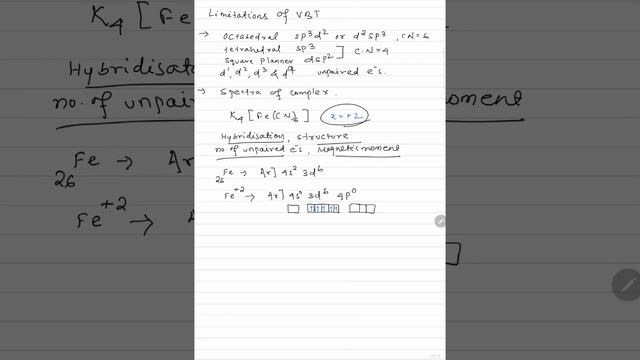 Limitations of VBT
→ Octahedral sp³d² or d²sp³, C.N=6
tetrahedral sp³ ] C.N=4
square planner dsp²
d¹, d², d³ & d⁹ unpaired e⁻s.
→ Spectra of complex.
K₄ [Fe(CN)₆] x=+2
Hybridisation, structure
no. of unpaired e⁻s, Magnetic moment
₂₆Fe → Ar] 4s² 3d⁶
Fe⁺² → Ar] 4s⁰ 3d⁶ 4p⁰
K₄ [Fe
Hybridisati
no. of unpa
moment
Fe → Ar
26
Fe⁺² →